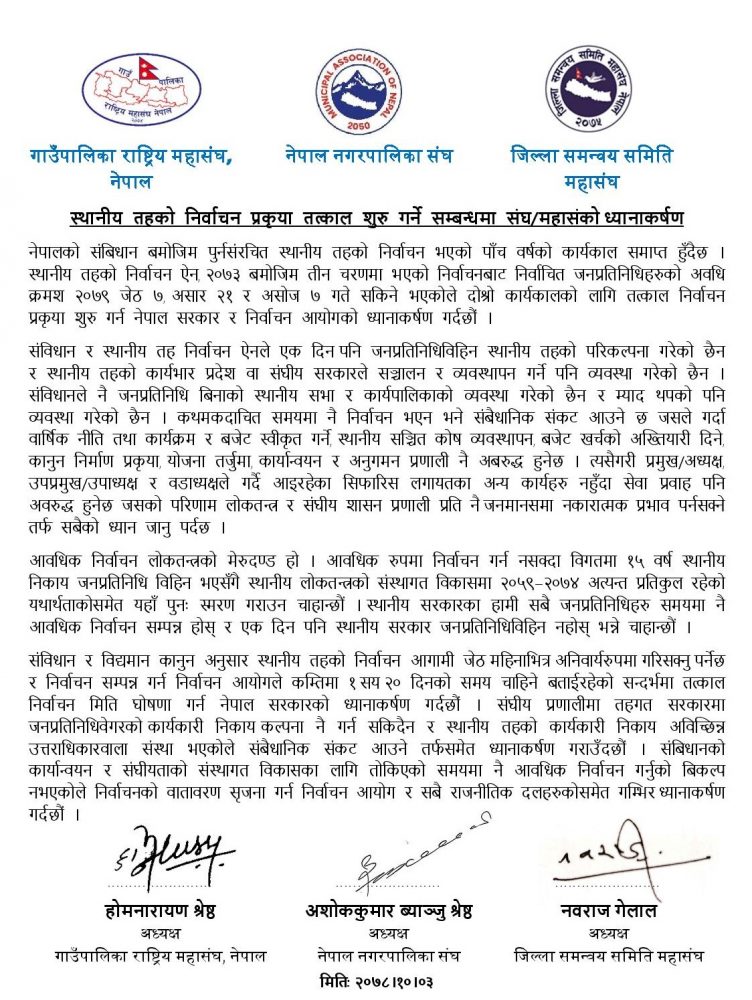 गाउँ पालिका
राष्ट्रिय महासंघ नेपाल
MUNICIPAL ASSOCIATION OF NEPAL
2050
जिल्ला समन्वय समिति महासंघ नेपाल
२०७५
गाउँपालिका राष्ट्रिय महासंघ, नेपाल नगरपालिका संघ जिल्ला समन्वय समिति
नेपाल महासंघ
स्थानीय तहको निर्वाचन प्रकृया तत्काल शुरु गर्ने सम्बन्धमा संघ/महासंको ध्यानाकर्षण
नेपालको संबिधान बमोजिम पुर्नसंरचित स्थानीय तहको निर्वाचन भएको पाँच वर्षको कार्यकाल समाप्त हुँदैछ ।
स्थानीय तहको निर्वाचन ऐन, २०७३ बमोजिम तीन चरणमा भएको निर्वाचनबाट निर्वाचित जनप्रतिनिधिहरुको अवधि
क्रमश २०७९ जेठ ७, असार २१ र असोज ७ गते सकिने भएकोले दोश्रो कार्यकालको लागि तत्काल निर्वाचन
प्रकृया शुरु गर्न नेपाल सरकार र निर्वाचन आयोगको ध्यानाकर्षण गर्दछौं ।
संविधान र स्थानीय तह निर्वाचन ऐनले एक दिन पनि जनप्रतिनिधिविहिन स्थानीय तहको परिकल्पना गरेको छैन
र स्थानीय तहको कार्यभार प्रदेश वा संघीय सरकारले सञ्चालन र व्यवस्थापन गर्ने पनि व्यवस्था गरेको छैन ।
संविधानले नै जनप्रतिनिधि बिनाको स्थानीय सभा र कार्यपालिकाको व्यवस्था गरेको छैन र म्याद थपको पनि
व्यवस्था गरेको छैन । कथमकदाचित समयमा नै निर्वाचन भएन भने संबैधानिक संकट आउने छ जसले गर्दा
वार्षिक नीति तथा कार्यक्रम र बजेट स्वीकृत गर्ने, स्थानीय सञ्चित कोष व्यवस्थापन, बजेट खर्चको अख्तियारी दिने,
कानुन निर्माण प्रकृया, योजना तर्जुमा, कार्यान्वयन र अनुगमन प्रणाली नै अबरुद्ध हुनेछ । त्यसैगरी प्रमुख/अध्यक्ष,
उपप्रमुख/उपाध्यक्ष र वडाध्यक्षले गर्दै आइरहेका सिफारिस लगायतका अन्य कार्यहरु नहुँदा सेवा प्रवाह पनि
अवरुद्ध हुनेछ जसको परिणाम लोकतन्त्र र संघीय शासन प्रणाली प्रति नै जनमानसमा नकारात्मक प्रभाव पर्नसक्ने
तर्फ सबैको ध्यान जानु पर्दछ ।
आवधिक निर्वाचन लोकतन्त्रको मेरुदण्ड हो । आवधिक रुपमा निर्वाचन गर्न नसक्दा विगतमा १५ वर्ष स्थानीय
निकाय जनप्रतिनिधि विहिन भएसँगै स्थानीय लोकतन्त्रको संस्थागत विकासमा २०५९–२०७४ अत्यन्त प्रतिकुल रहेको
यथार्थताकोसमेत यहाँ पुनः स्मरण गराउन चाहान्छौं । स्थानीय सरकारका हामी सबै जनप्रतिनिधिहरु समयमा नै
आवधिक निर्वाचन सम्पन्न होस् र एक दिन पनि स्थानीय सरकार जनप्रतिनिधिविहिन नहोस् भन्ने चाहान्छौं ।
संविधान र विद्यमान कानुन अनुसार स्थानीय तहको निर्वाचन आगामी जेठ महिनाभित्र अनिवार्यरुपमा गरिसक्नु पर्नेछ
र निर्वाचन सम्पन्न गर्न निर्वाचन आयोगले कम्तिमा १ सय २० दिनको समय चाहिने बताईरहेको सन्दर्भमा तत्काल
निर्वाचन मिति घोषणा गर्न नेपाल सरकारको ध्यानाकर्षण गर्दछौं । संघीय प्रणालीमा तहगत सरकारमा
जनप्रतिनिधिवेगरको कार्यकारी निकाय कल्पना नै गर्न सकिदैन र स्थानीय तहको कार्यकारी निकाय अविन्छिन्न
उत्तराधिकारवाला संस्था भएकोले संबैधानिक संकट आउने तर्फसमेत ध्यानाकर्षण गराउँदछौं । संबिधानको
कार्यान्वयन र संघीयताको संस्थागत विकासका लागि तोकिएको समयमा नै आवधिक निर्वाचन गर्नुको बिकल्प
नभएकोले निर्वाचनको वातावरण सृजना गर्न निर्वाचन आयोग र सबै राजनीतिक दलहरुकोसमेत गम्भिर ध्यानाकर्षण
गर्दछौं ।
होमनारायण श्रेष्ठ अशोककुमार ब्याञ्जु श्रेष्ठ नवराज गेलाल
अध्यक्ष अध्यक्ष अध्यक्ष
गाउँपालिका राष्ट्रिय महासंघ, नेपाल नेपाल नगरपालिका संघ जिल्ला समन्वय समिति महासंघ
मितिः २०७८।१०।०३